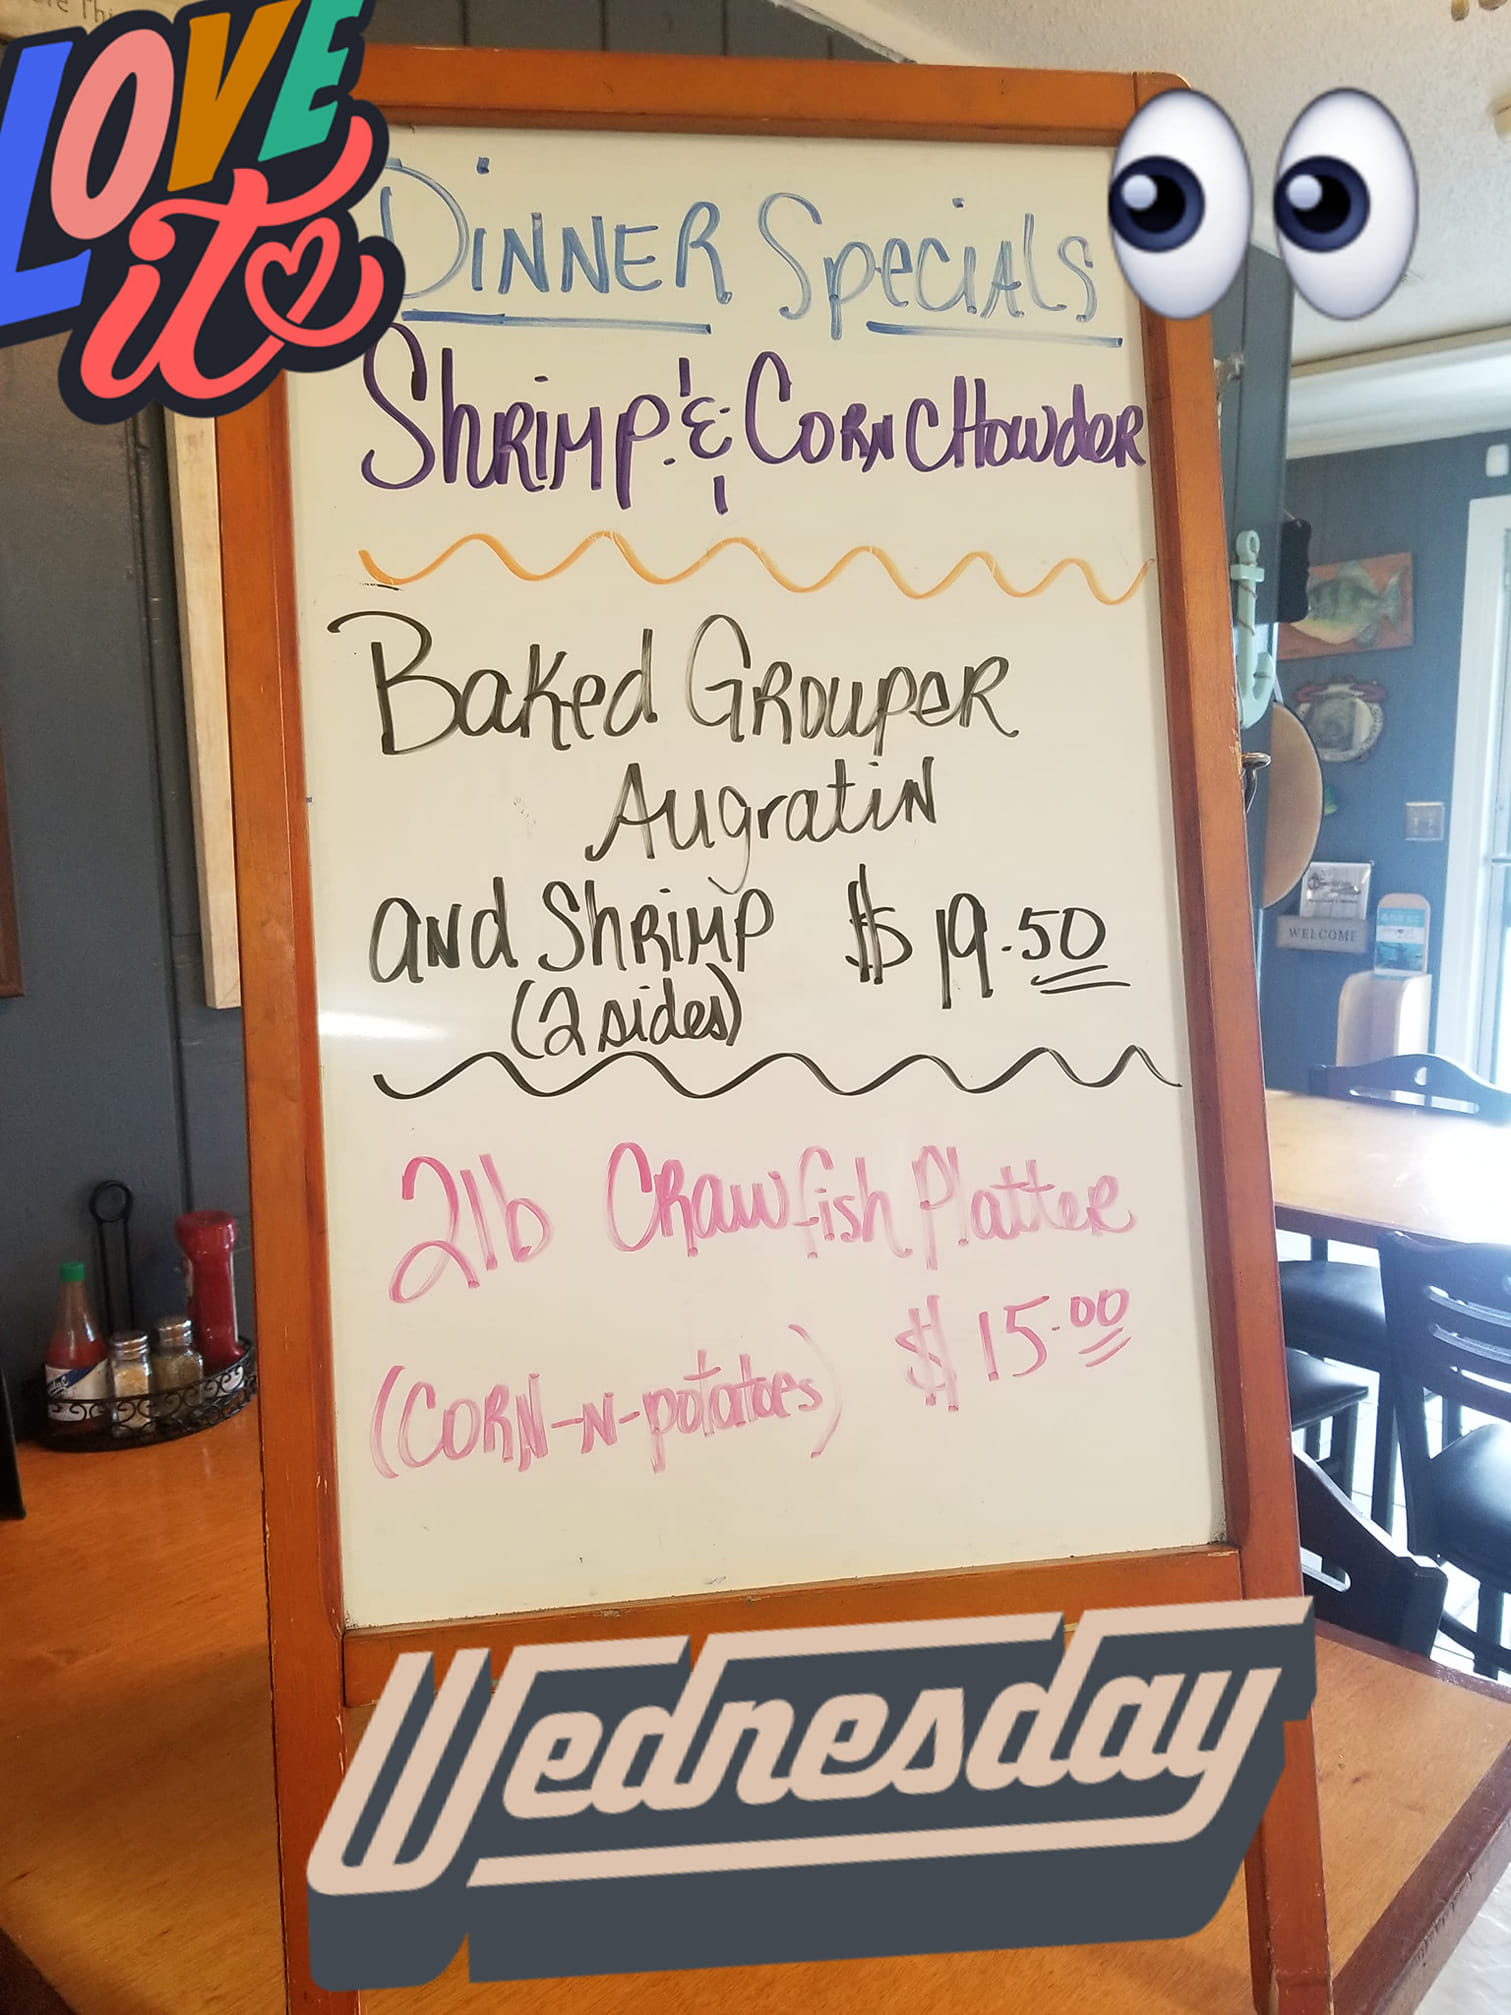 LOVE
it
DINNER Specials
Shrimp & Corn Chowder
Baked Grouper
Augratin
and Shrimp $19.50
(2 sides)
2lb Crawfish Platter
$15.00
(Corn-N-potatoes)
WELCOME
Wednesday